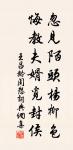 忽見陌頭楊柳色
悔教夫婿覓封侯
王昌齡閨怨詞